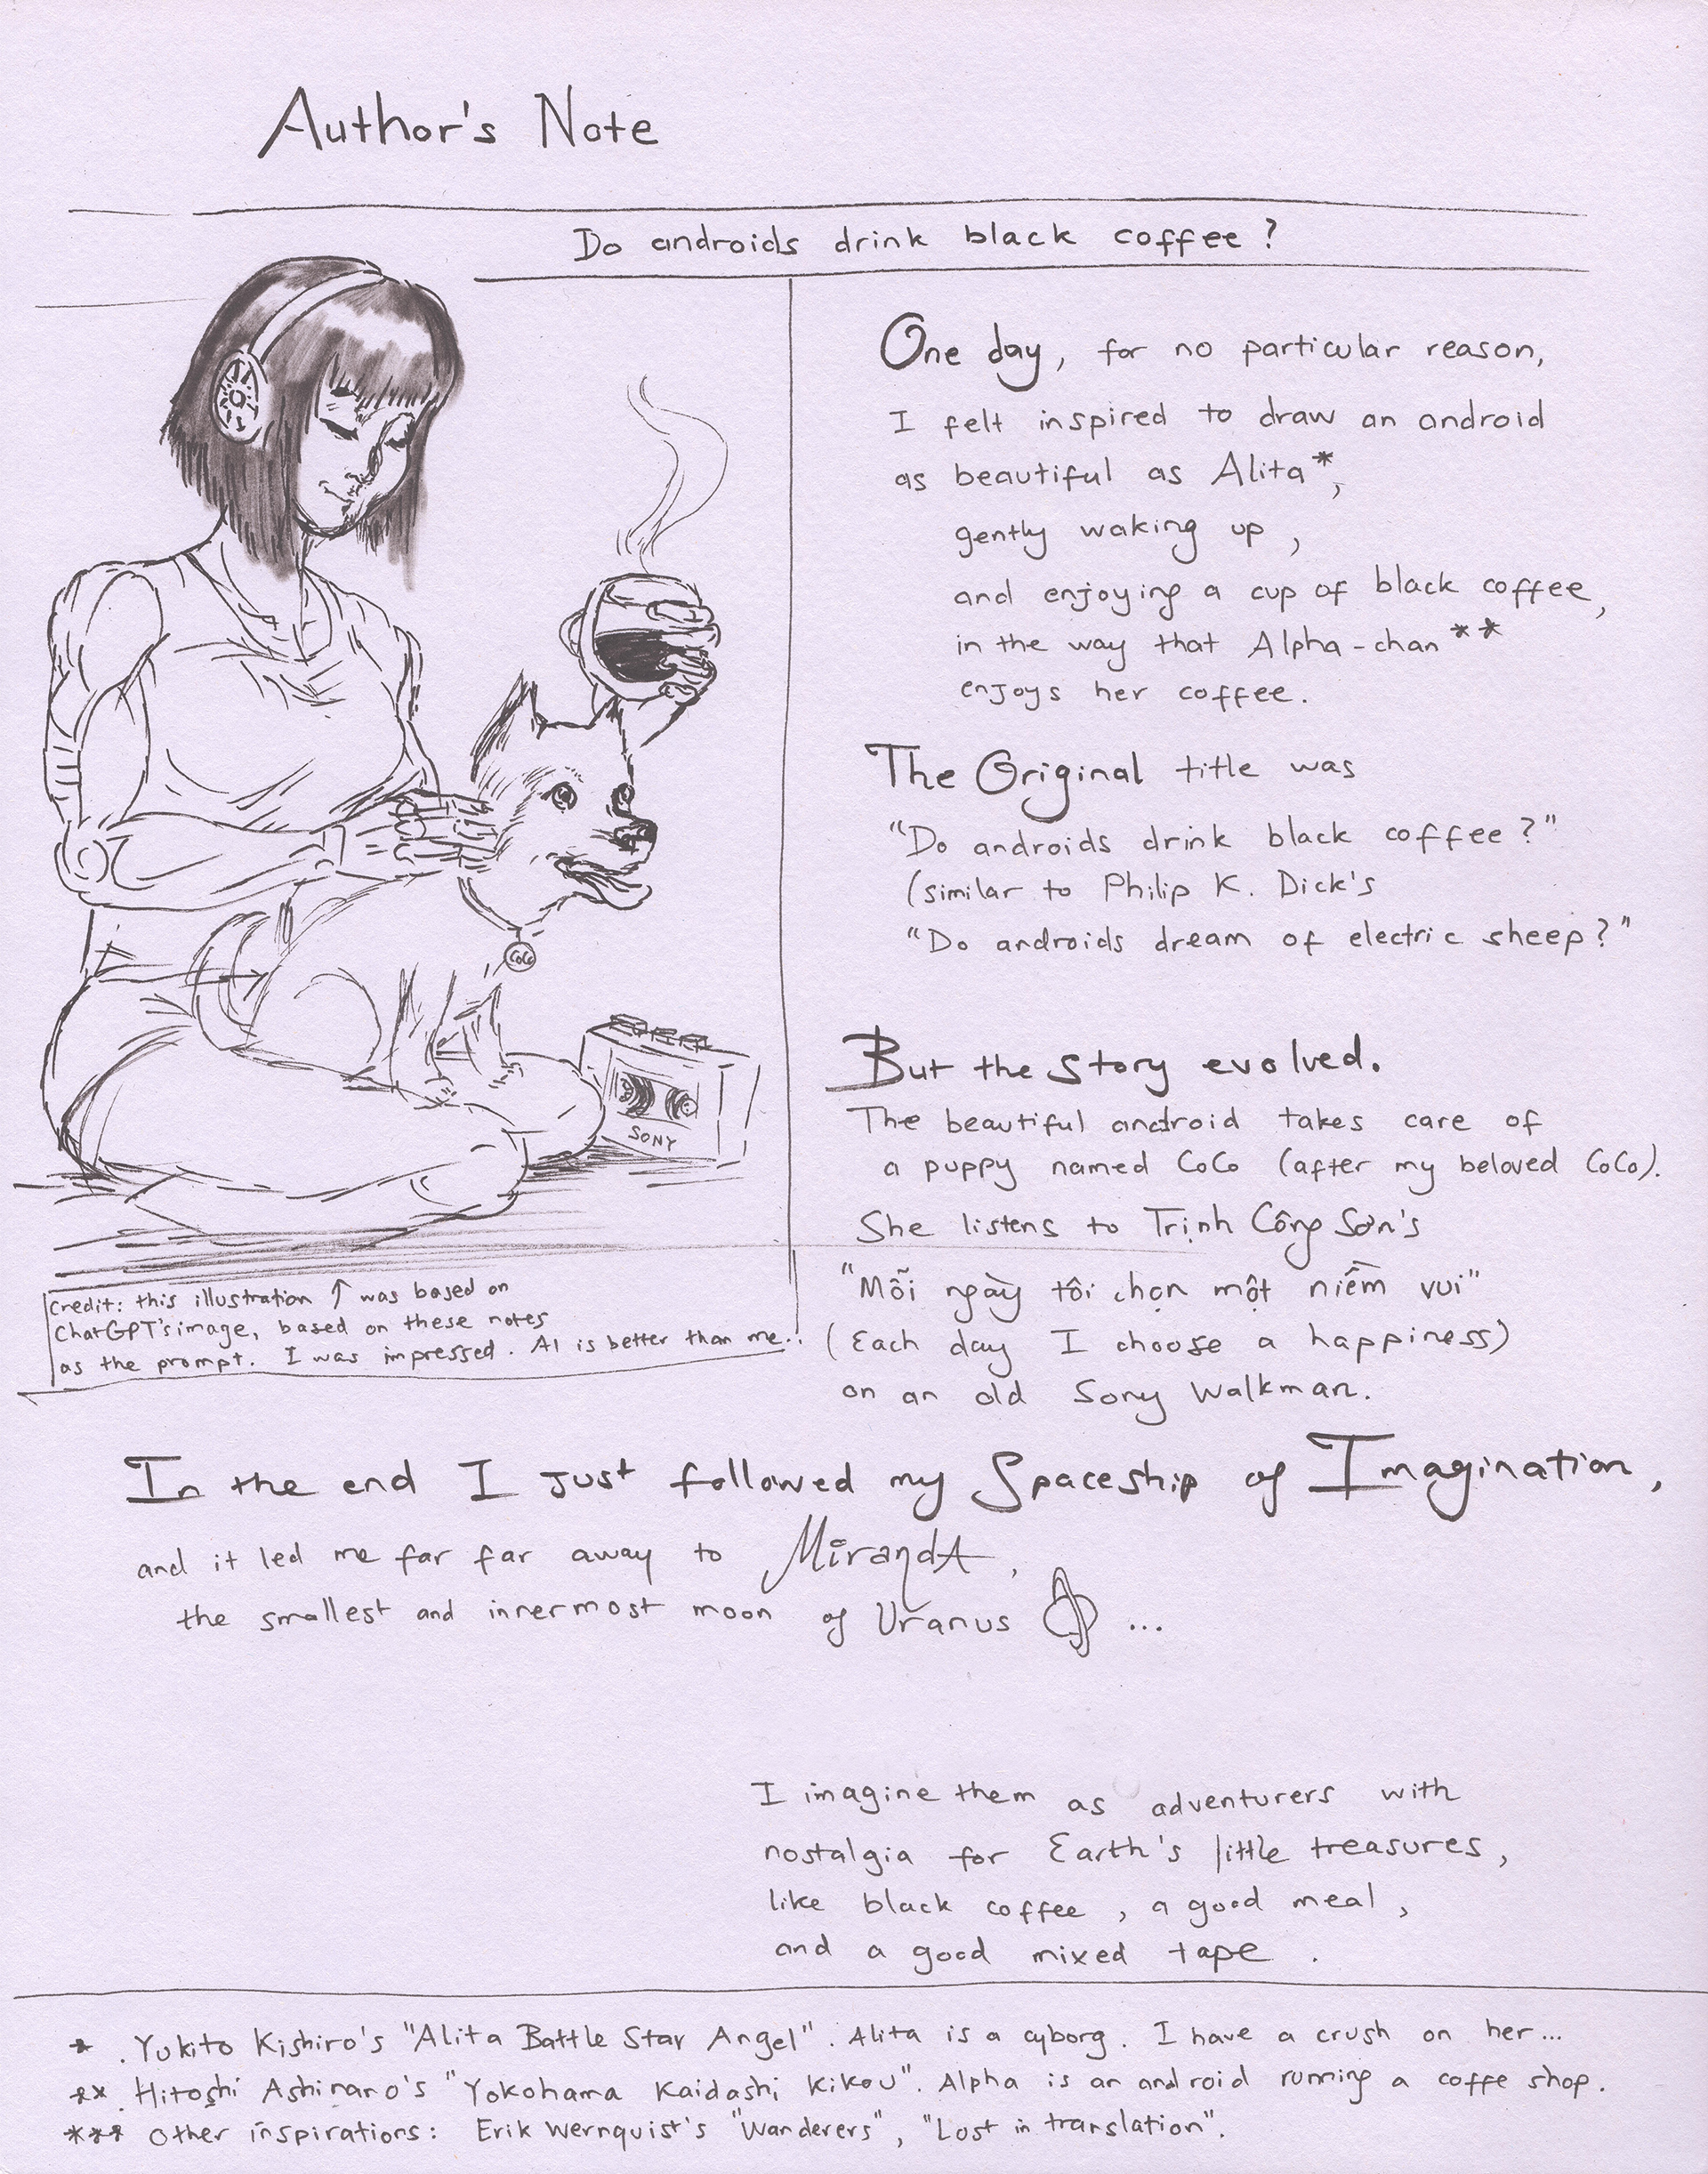 Author's Note
Do androids drink black coffee?
One day, for no particular reason,
I felt inspired to draw an android
as beautiful as Alita*,
gently waking up,
and enjoying a cup of black coffee,
in the way that Alpha-chan**
enjoys her coffee.
The Original title was
"Do androids drink black coffee?"
(similar to Philip K. Dick's
"Do androids dream of electric sheep?"
But the story evolved.
The beautiful android takes care of
a puppy named CoCo (after my beloved CoCo).
She listens to Trịnh Công Sơn's
"Mỗi ngày tôi chọn một niềm vui"
(Each day I choose a happiness)
on an old Sony Walkman.
CoCo
SONY
Credit: this illustration ↑ was based on
ChatGPT's image, based on these notes
as the prompt. I was impressed. AI is better than me..!
In the end I just followed my Spaceship of Imagination,
and it led me far far away to MirandA,
the smallest and innermost moon of Uranus ...
I imagine them as adventurers with
nostalgia for Earth's little treasures,
like black coffee, a good meal,
and a good mixed tape.
* . Yukito Kishiro's "Alita Battle Star Angel". Alita is a cyborg. I have a crush on her...
** . Hitoshi Ashinano's "Yokohama Kaidashi Kikou". Alpha is an android running a coffe shop.
*** Other inspirations: Erik Wernquist's "Wanderers", "Lost in translation".